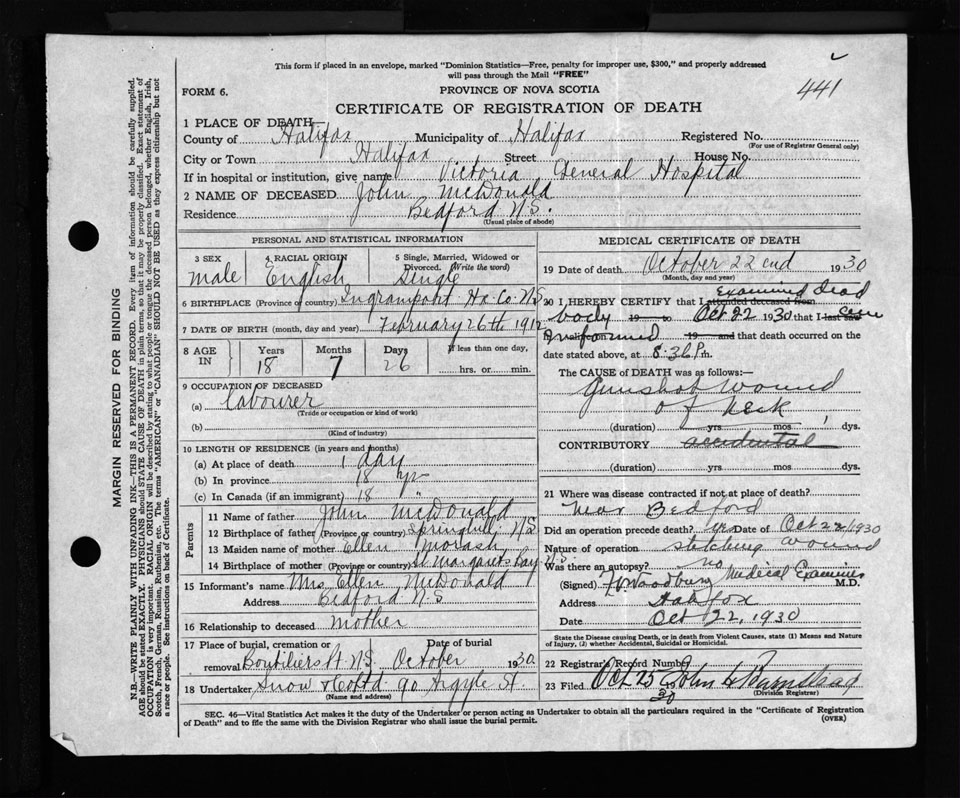 This form if placed in an envelope, marked "Dominion Statistics—Free, penalty for improper use, $300," and properly addressed
will pass through the Mail "FREE"
441
FORM 6.
PROVINCE OF NOVA SCOTIA
CERTIFICATE OF REGISTRATION OF DEATH
1 PLACE OF DEATH
County of Halifax Municipality of Halifax Registered No.
(For use of Registrar General only)
City or Town Halifax Street House No.
If in hospital or institution, give name Victoria General Hospital
2 NAME OF DECEASED John McDonald
Residence Bedford N.S.
(Usual place of abode)
PERSONAL AND STATISTICAL INFORMATION
3 SEX male
4 RACIAL ORIGIN English
5 Single, Married, Widowed or Divorced. (Write the word) Single
6 BIRTHPLACE (Province or country) Ingramport Hx. Co. N.S.
7 DATE OF BIRTH (month, day and year) February 26th 1912
8 AGE IN Years 18 Months 7 Days 26 If less than one day, hrs. or min.
9 OCCUPATION OF DECEASED
(a) Labourer
(Trade or occupation or kind of work)
(b)
(Kind of industry)
10 LENGTH OF RESIDENCE (in years and months)
(a) At place of death 1 day
(b) In province 18 yr
(c) In Canada (if an immigrant) 18 "
Parents
11 Name of father John McDonald
12 Birthplace of father (Province or country) Springhill N.S
13 Maiden name of mother Ellen Morash
14 Birthplace of mother (Province or country) St Margarets Bay N.S.
15 Informant's name Mrs Ellen McDonald
Address Bedford N.S
16 Relationship to deceased mother
17 Place of burial, cremation or removal Boutiliers Pt. N.S. Date of burial October 1930
18 Undertaker Snow & Co Ltd 90 Argyle St.
(Name and address)
MEDICAL CERTIFICATE OF DEATH
19 Date of death October 22nd 1930
(Month, day and year)
20 I HEREBY CERTIFY that I attended deceased from examined dead
body 19 to Oct 22 1930 that I last saw
informed 19 and that death occurred on the
date stated above, at 8.36 P.m.
The CAUSE OF DEATH was as follows:—
Gunshot wound
of neck
(duration) yrs. mos. 1 dys.
CONTRIBUTORY accidental
(duration) yrs. mos. dys.
21 Where was disease contracted if not at place of death?
Near Bedford
Did an operation precede death? yes Date of Oct 22/1930
Nature of operation stitching wound
Was there an autopsy? no
(Signed) Woodbury Medical Examiner M.D.
Address Halifax
Date Oct 22, 1930
State the Disease causing Death, or in death from Violent Causes, state (1) Means and Nature
of Injury, (2) whether Accidental, Suicidal or Homicidal.
22 Registrar's Record Number
23 Filed Oct 25 30 John
(Division Registrar)
SEC. 46—Vital Statistics Act makes it the duty of the Undertaker or person acting as Undertaker to obtain all the particulars required in the "Certificate of Registration
of Death" and to file the same with the Division Registrar who shall issue the burial permit.
(OVER)
MARGIN RESERVED FOR BINDING
N.B.—WRITE PLAINLY WITH UNFADING INK—THIS IS A PERMANENT RECORD. Every item of information should be carefully supplied.
AGE should be stated EXACTLY. PHYSICIANS should STATE CAUSE OF DEATH in plain terms, so that it may be properly classified. Exact statement of
OCCUPATION is very important. RACIAL ORIGIN will be described by stating to what people or tongue the deceased person belonged, whether English, Irish,
Scotch, French, German, Russian, Ruthenian, etc. The terms "AMERICAN" or "CANADIAN" SHOULD NOT BE USED as they express citizenship but not
a race or people. See instructions on back of Certificate.